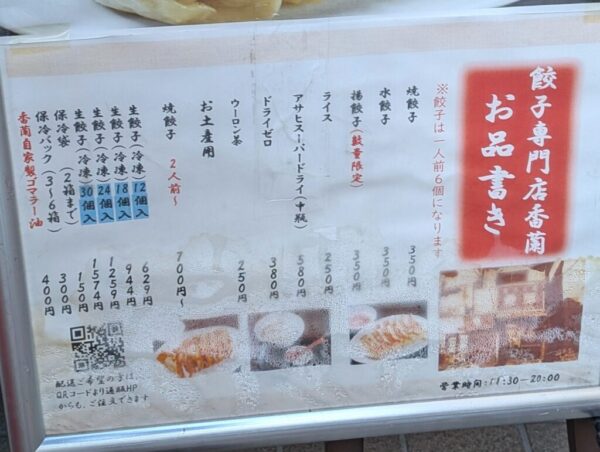 餃子専門店香蘭
お品書き
※餃子は一人前6個になります
焼餃子 350円
水餃子 350円
揚餃子(数量限定) 350円
ライス 250円
アサヒスーパードライ(中瓶) 580円
ドライゼロ 380円
ウーロン茶 250円
お土産用
焼餃子 2人前~ 700円~
生餃子(冷凍)12個入 629円
生餃子(冷凍)18個入 944円
生餃子(冷凍)24個入 1259円
生餃子(冷凍)30個入 1574円
保冷袋(2箱まで) 150円
保冷パック(3~6箱) 300円
香蘭自家製ゴマラー油 400円
配送ご希望の方は
QRコードより通販HP
からも、ご注文できます
営業時間:11:30-20:00